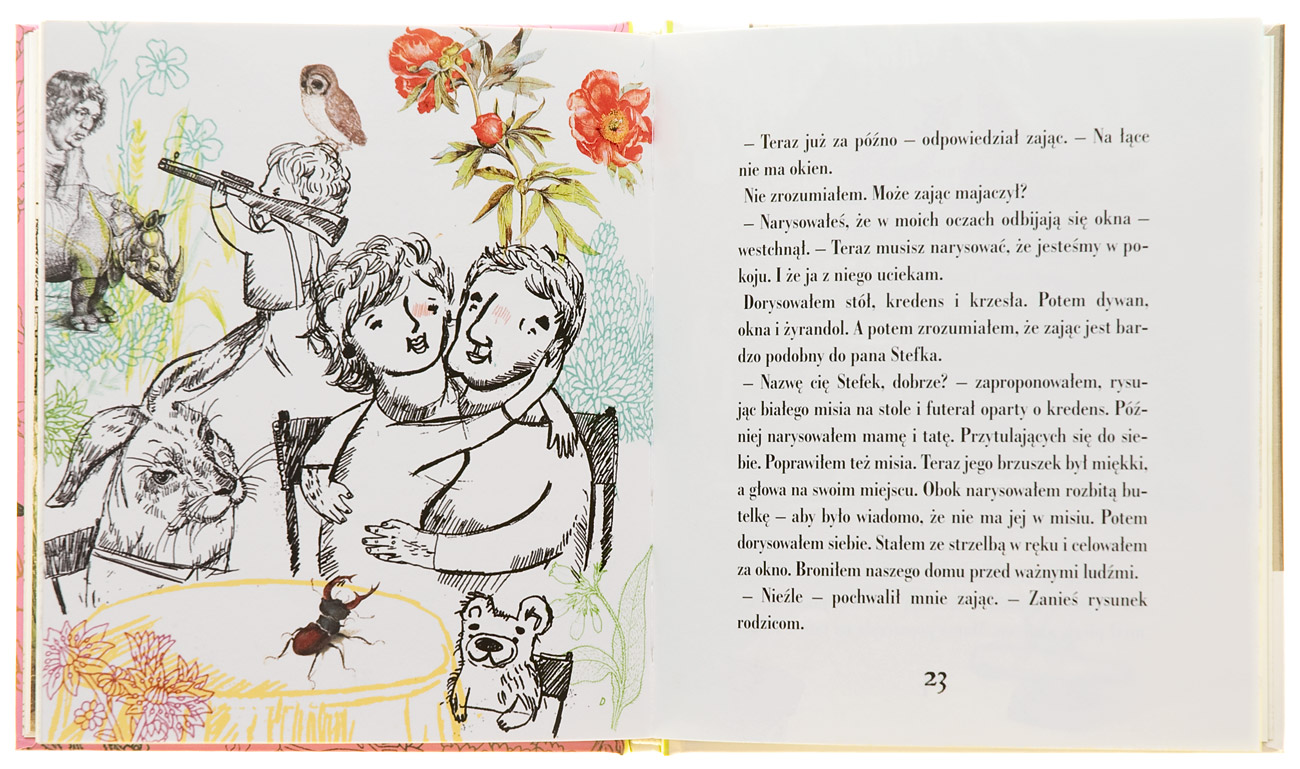 – Teraz już za późno – odpowiedział zając. – Na łące
nie ma okien.
Nie zrozumiałem. Może zając majaczył?
– Narysowałeś, że w moich oczach odbijają się okna –
westchnął. – Teraz musisz narysować, że jesteśmy w po-
koju. I że ja z niego uciekam.
Dorysowałem stół, kredens i krzesła. Potem dywan,
okna i żyrandol. A potem zrozumiałem, że zając jest bar-
dzo podobny do pana Stefka.
– Nazwę cię Stefek, dobrze? – zaproponowałem, rysu-
jąc białego misia na stole i futerał oparty o kredens. Póź-
niej narysowałem mamę i tatę. Przytulających się do sie-
bie. Poprawiłem też misia. Teraz jego brzuszek był miękki,
a głowa na swoim miejscu. Obok narysowałem rozbitą bu-
telkę – aby było wiadomo, że nie ma jej w misiu. Potem
dorysowałem siebie. Stałem ze strzelbą w ręku i celowałem
za okno. Broniłem naszego domu przed ważnymi ludźmi.
– Nieźle – pochwalił mnie zając. – Zanieś rysunek
rodzicom.
23